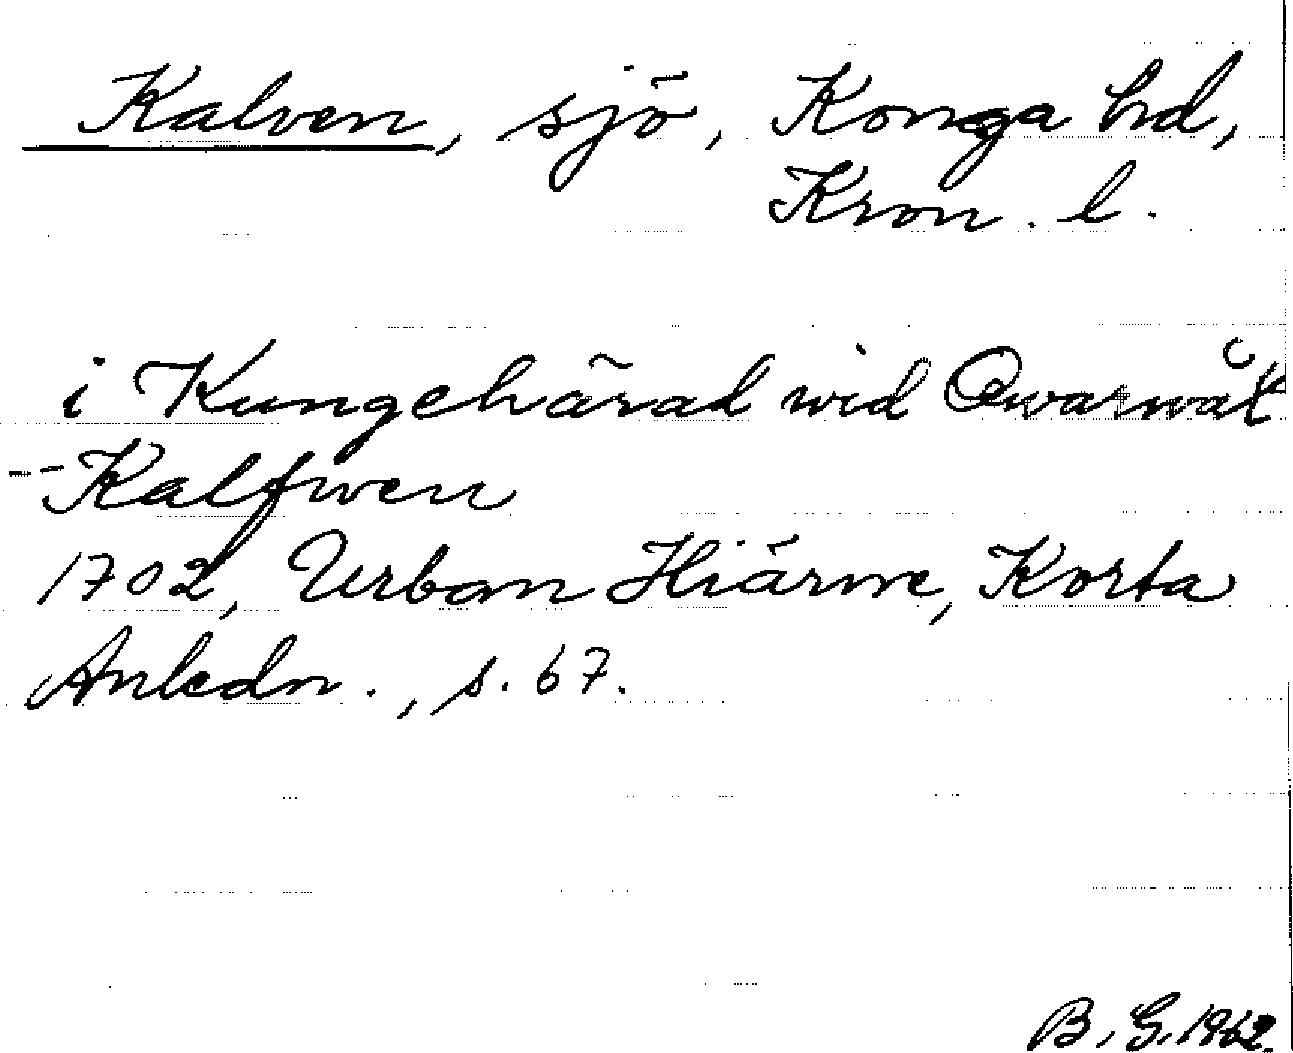 Kalven, sjö, Konga hd,
Kron. l.
i Kungehärad wid Qwarnåt
-- Kalfwen
1702, Urban Hiärne, Korta
Anledn., s. 67.
B. G. 1962.